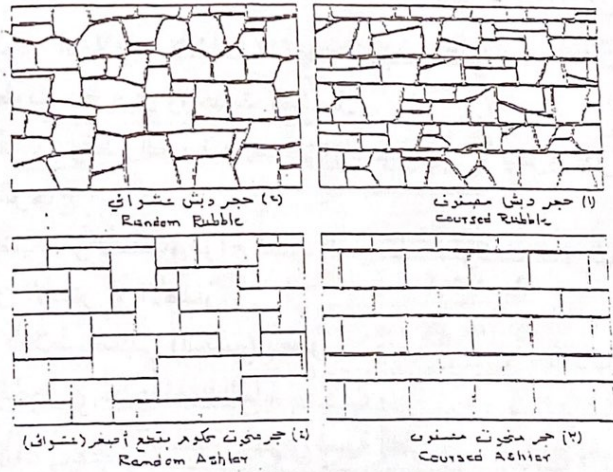 (١) حجر دبش مصفوف
Coursed Rubble
(٢) حجر دبش عشوائي
Random Rubble
(٣) حجر منحوت مصفوف
Coursed Ashlar
(٤) حجر منحوت محكوم بقطع أصغر (عشوائي)
Random Ashlar